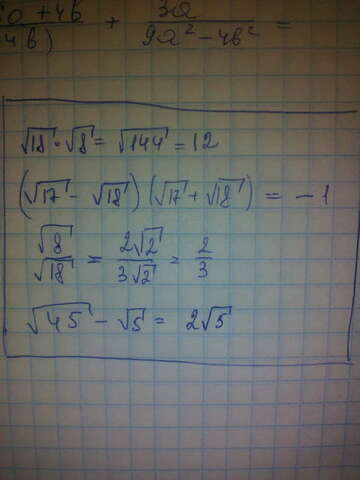 a + 4b / 4b) + 3a / 9a² - 4b² =
√18 · √8 = √144 = 12
(√17 - √18) (√17 + √18) = -1
√8 / √18 = 2√2 / 3√2 = 2 / 3
√45 - √5 = 2√5